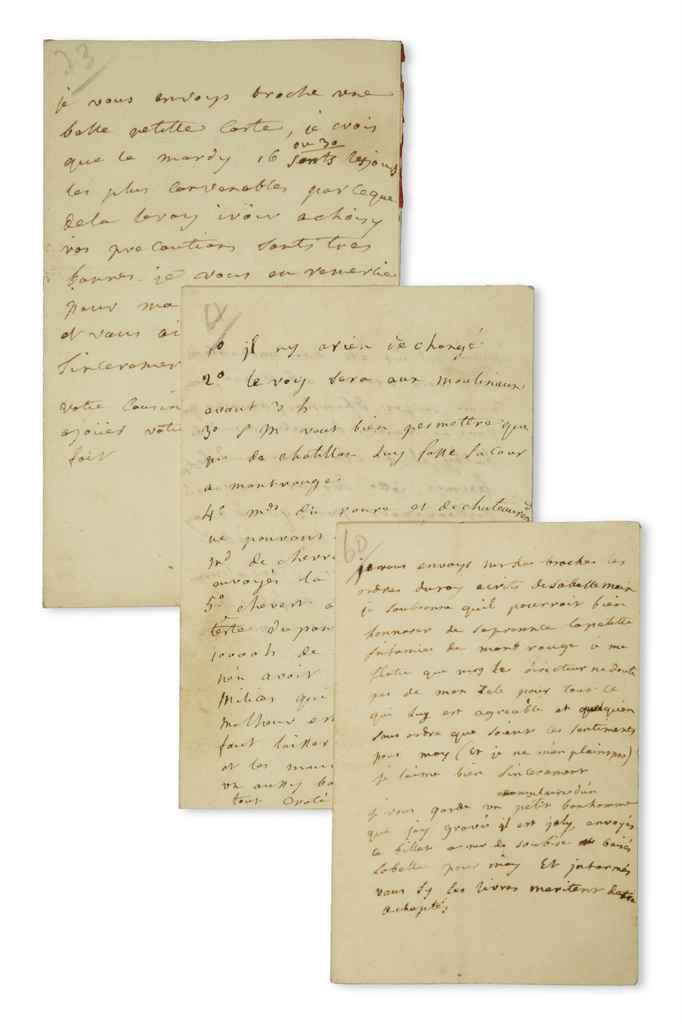 23
je vous envoys broche une
belle petitte Carte, je crois
que le mardy 16 ou 30 sonts les jours
les plus Convenables parceque
dela le roy ira a choisy
vos precautions sonts tres
bonnes je vous en remercie
pour ma
et vous ai
Sincerement
votre Cousin
votre
foit
1º il ny a rien de changé
2º le roy sera aux moulineaux
avant 3 h
3º S M veut bien permettre que
de chatillon luy fasse sa Cour
a montrouge
4º mds du roure et de chateau
ne pouvant
md de chevre
envoyés la
5º chevert a
terte du pon
10000h de
n'en avoir
milices qui
malheur est
faut laisser
et les mau
un aussy ba
tout
60
je vous envoys sur des broches les
ordres du roy ecrits de sa belle main
je soubconne quil pourroit bien
honnorer de sa presence la petitte
infamies de mont rouge je me
flatte que mrs le directeur ne doute
pas de mon Zele pour tout ce
qui luy est agreable et quelquen
sous ordre que soient ces sentiments
pour moy (Et je ne men plains pas)
je l'aime bien Sincerement
je vous garde un petit bonhomme
que jay gravé il est joly, envoyés
ce billet a mr de soubise baisés
la belle pour moy Et informés
vous sy les livres meritent detre
acheptés